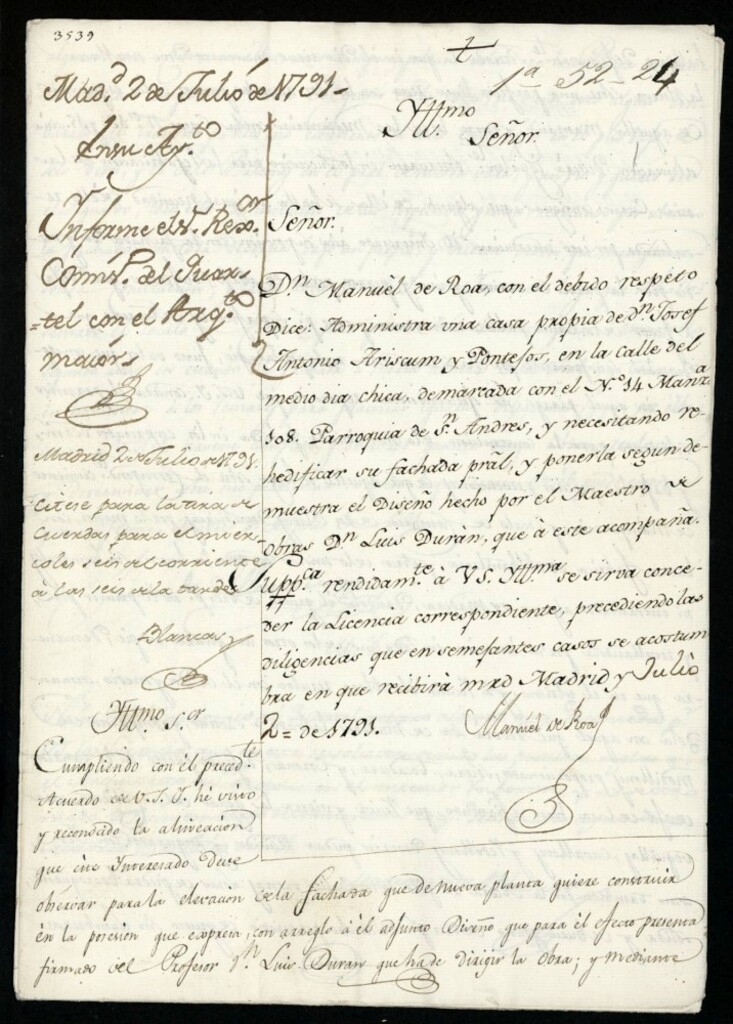 3539
1ª 52-24
Mad.d 2 de Julio de 1791-
En su Ay.to
Informe el S.r Rexor.
Comis.o del Quar-
=tel con el Arq.to
maior
Madrid 2 de Julio de 1791.
Citese para la tira de
Cuerdas para el mier-
coles seis del corriente
a las seis de la tarde
Blancas
Yttmo
Señor.
Señor.
D.n Manuel de Roa, con el debido respeto
Dice: Administra una casa propia de d.n Josef
Antonio Ariscum y Pontejos, en la calle del
medio dia chica, demarcada con el N.º 14 Manz.a
108. Parroquia de S.n Andres, y necesitando re-
hedificar su fachada pral, y ponerla segun de-
muestra el Diseño hecho por el Maestro de
obras D.n Luis Durán, que à este acompaña.
Supp.ca rendidam.te à VS. Yttma se sirva conce-
der la Licencia correspondiente, precediendo las
diligencias que en semejantes casos se acostum
bra en que recibirà mrd Madrid y Julio
2= de 1791.
Manuel de Roa
Yttmo S.or
Cumpliendo con el preced.te
Acuerdo de V.S.I. hè visto
y reconocido la alineacion
que este Interesado Deve
observar para la elevación de la fachada que de nueva planta quiere construir
en la posesión que expresa, con arreglo à èl adjunto Diseño que para èl efecto presenta
firmado del Profesor D.n Luis Duran que ha de dirigir la obra; y mediante